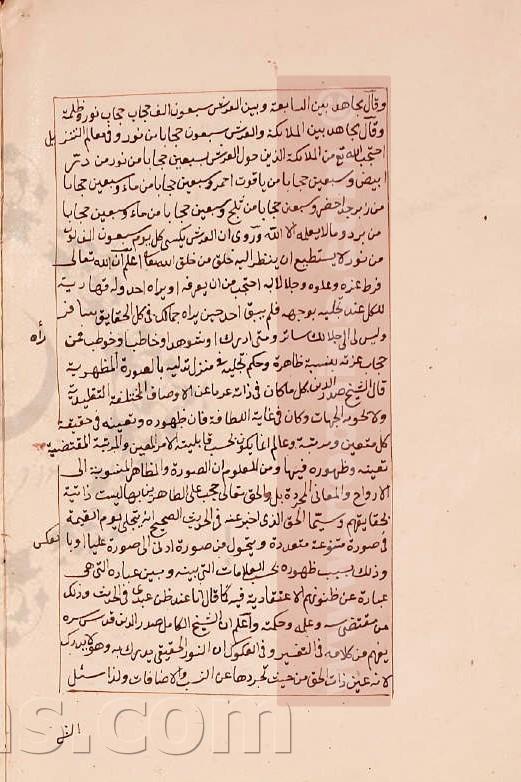 وقال مجاهد بين السابعة وبين العرش سبعون الف حجاب حجاب نور وظلمة
وقال مجاهد بين الملائكة والعرش سبعون حجابا من نور وفى معالم التنزيل
احتجب الله تع من الملائكة الذين حول العرش سبعين حجابا من نور من در
ابيض وسبعين حجابا من ياقوت احمر وسبعين حجابا من ماء وسبعين حجابا
من زبرجد اخضر وسبعين حجابا من ثلج وسبعين حجابا من ماء وسبعين حجابا
من برد وما لا يعلمه الا الله وروى ان العرش يكسى كل يوم سبعون الف لون
من نور لا يستطيع ان ينظر اليه خلق من خلق الله اعلم ان الله تعالى
فرط عزه وعلوه وجلاله احتجب من ان يعرفه او يراه احد وله قهارية
للكل عند تجليه بوجهه فلم يبق احد حين يراه جمالك فى كل الحقايق سافر
وليس له الا جلالك ساتر ومتى ادرك او شوهد او خاطب او خوطب فمن
راه
حجاب عزته بنسبة ظاهرة وحكم تجليه فى منزل تدليه بالصورة المظهرية
قال الشيخ صدر الدين كل ما كان فى ذاته عريا عن الاوصاف المختلفة التقليدية
والحدود الجهات وكان فى غاية اللطافة فان ظهوره وتعينه فى حقيقة
كل متعين ومرتبة وعالم انما يكون بحسب قابلية الامر المعين والمرتبة المقتضية
تعينه وظهوره فيها ومن المعلوم ان الصورة والمظاهر المنسوبة الى
الارواح والمعانى المجردة بل والحق تعالى حجب على الظاهرين بها ليست ذاتية
لحقايقهم وسيما الحق الذى اخبر عنه فى الحديث الصحيح انه يتجلى يوم القيمة
فى صورة متنوعة متعددة ويتحول من صورة ادنى الى صورة عليا او با
لعكس
وذلك بسبب ظهوره بحسب العلامات التى بينه وبين عباده التى هى
عبارة عن ظنونهم الاعتقادية فيه كما قال انا عند ظن عبدى فى الحديث وذلك
من مقتضى سره وعلمه وحكمته واعلم ان الشيخ الكامل صدر الدين قدس سره
يفهم من كلامه فى التفسير وفى الفكوك ان النور الحقيقى يدرك به وهو لا يدرك
لانه عين ذات الحق من حيث تجردها عن النسب والاضافات ولذا سئل
النبى